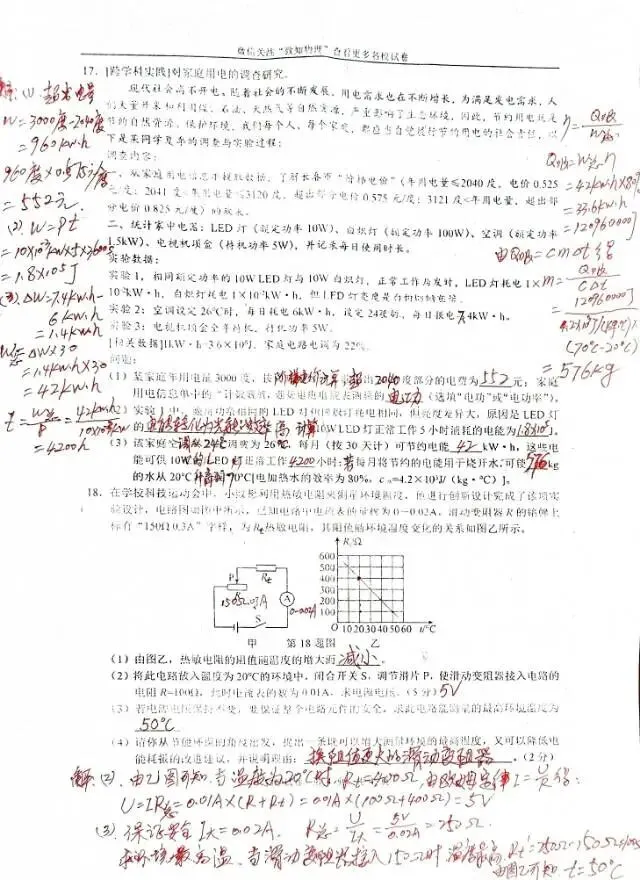 微信关注“致知物理”查看更多名校试卷
17. [跨学科实践]对家庭用电的调查研究。
现代社会离不开电。随着社会的不断发展，用电需求也在不断增长，为满足发电需求，人
们大量开采和利用煤、石油、天然气等自然资源，严重影响了生态环境，因此，节约用电就是
节约自然资源、保护环境，我们每个人、每个家庭，都应当自觉履行节约用电的社会责任，以
下是某同学复杂的调查与实验过程：
调查内容：
一、从家庭用电信息卡提取数据，了解长春市“阶梯电价”（年用电量≤2040度，电价0.525
元/度；2041度≤年用电量≤3120度，超出部分电价0.575元/度；3121度≤年用电量，超出部
分电价0.825元/度）的收取。
二、统计家中电器：LED灯（额定功率10W）、白炽灯（额定功率100W）、空调（额定功率
1.5kW）、电视机顶盒（待机功率5W），并记录每日使用时长。
实验数据：
实验1，相同额定功率的10W LED灯与10W白炽灯，正常工作
实验2：空调设定26℃时，每日耗电6kW·h，设定24℃时，每日耗电7.4kW·h。
实验3：电视机顶盒全年待机，待机功率5W。
[相关数据]1kW·h=3.6×10⁶J，家庭电路电压为220V。
问题：
(1) 某家庭年用电量3000度，按阶梯电价计算超出2040度部分的电费为552元；家庭
用电信息单中的“计数 电功（选填“电功”或“电功率”）。
(2) 实验1中，额定功率相同的LED灯和白炽灯耗电相同，但亮度差异大，原因是LED灯
的电能转化为光能的效率高，计算10W LED灯正常工作5小时消耗的电能为1.8×10⁵J。
(3) 该家庭空调从24℃调为26℃，每月（按30天计）可节约电能42kW·h，这些电
能可供10W的LED灯正常工作4200小时；若每月将节约的电能用于烧开水，可使576kg
的水从20℃升高到70℃[电加热水的效率为80%，c水=4.2×10³J/（kg·℃）]。
解：(1) 超出电量
W=3000度-2040度
=960kW·h
960度×0.575元/度
=552元.
(2) W=Pt
=10×10⁻³kW×5×3600s
=1.8×10⁵J
(3). ΔW=7.4kW·h-
6kW·h
=1.4kW·h
W总=ΔW×30
=1.4kW·h×30
=42kW·h
t=W总/P=42kW·h/10×10⁻³kW
=4200h
η=Q吸/W总
Q吸=W总η
=42kW·h×80%
=33.6kW·h
=120960000J
由Q吸=cmΔt得
m=Q吸/cΔt
=120960000J/4.2×10³J/(kg·℃)×
(70℃-20℃)
=576kg
18. 在学校科技运动会中，小成想利用热敏电阻来测量环境温度，他进行创新设计完成了该项实
验设计，电路图如图甲所示，已知电路中电流表的量程为0~0.02A，滑动变阻器R的铭牌上
标有“150Ω 0.3A”字样，为Rt热敏电阻，其阻值随环境温度变化的关系如图乙所示。
P
Rt
A
S
0-0.02A
R/Ω
600
500
400
300
200
100
0 10 20 30 40 50 60 t/℃
甲 第18题图 乙
(1) 由图乙，热敏电阻的阻值随温度的增大而减小。
(2) 将此电路放入温度为20℃的环境中，闭合开关S，调节滑片P，使滑动变阻器接入电路的
电阻R=100Ω，此时电流表的示数为0.01A，求电源电压。(5分) 5V
(3) 若电源电压保持不变，要保证整个电路元件的安全，求此电路能测量的最高环境温度为
50℃
(4) 请你从节能环保的角度出发，提出一条既可以增大测量环境的最高温度，又可以降低电
能耗损的改进建议，并说明理由：换阻值更大的滑动变阻器。(2分)
解：(2). 由乙图可知，当温度为20℃时，Rt=400Ω 由欧姆定律I=U/R得：
U=IR总=0.01A×(R+Rt)=0.01A×(100Ω+400Ω)=5V
(3). 保证安全 I大=0.02A. R总=U/I大=5V/0.02A=250Ω.
求环境最高温，当滑动变阻器接入150Ω时 温度最高，Rt'=250Ω-150Ω
由图乙可知 t=50℃